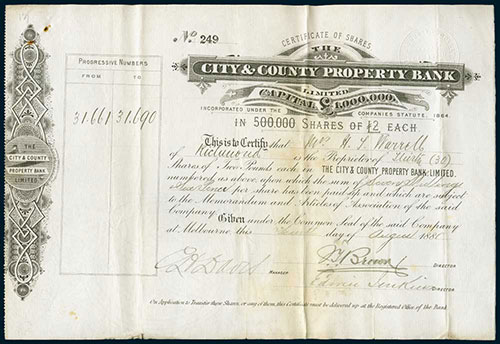 No. 249
CERTIFICATE OF SHARES
THE
CITY & COUNTY PROPERTY BANK
LIMITED
CAPITAL £1,000,000.
INCORPORATED UNDER THE COMPANIES STATUTE, 1864
IN 500,000 SHARES OF £2 EACH
PROGRESSIVE NUMBERS
FROM TO
31.661 31.690
This is to Certify that H. S. Warrell
of Richmond is the Proprietor of Thirty (30)
Shares of Two Pounds each in THE CITY & COUNTY PROPERTY BANK, LIMITED,
numbered as above upon which the sum of Shillings
Pence per share has been paid up and which are subject
to the Memorandum and Articles of Association of the said
Company
Given under the Common Seal of the said Company
at Melbourne this day of August 188
MANAGER
Brown DIRECTOR
Edwin Jenkins DIRECTOR
On Application to Transfer these Shares, or any of them, this Certificate must be delivered up at the Registered Office of the Bank
THE
CITY & COUNTY
PROPERTY BANK
LIMITED